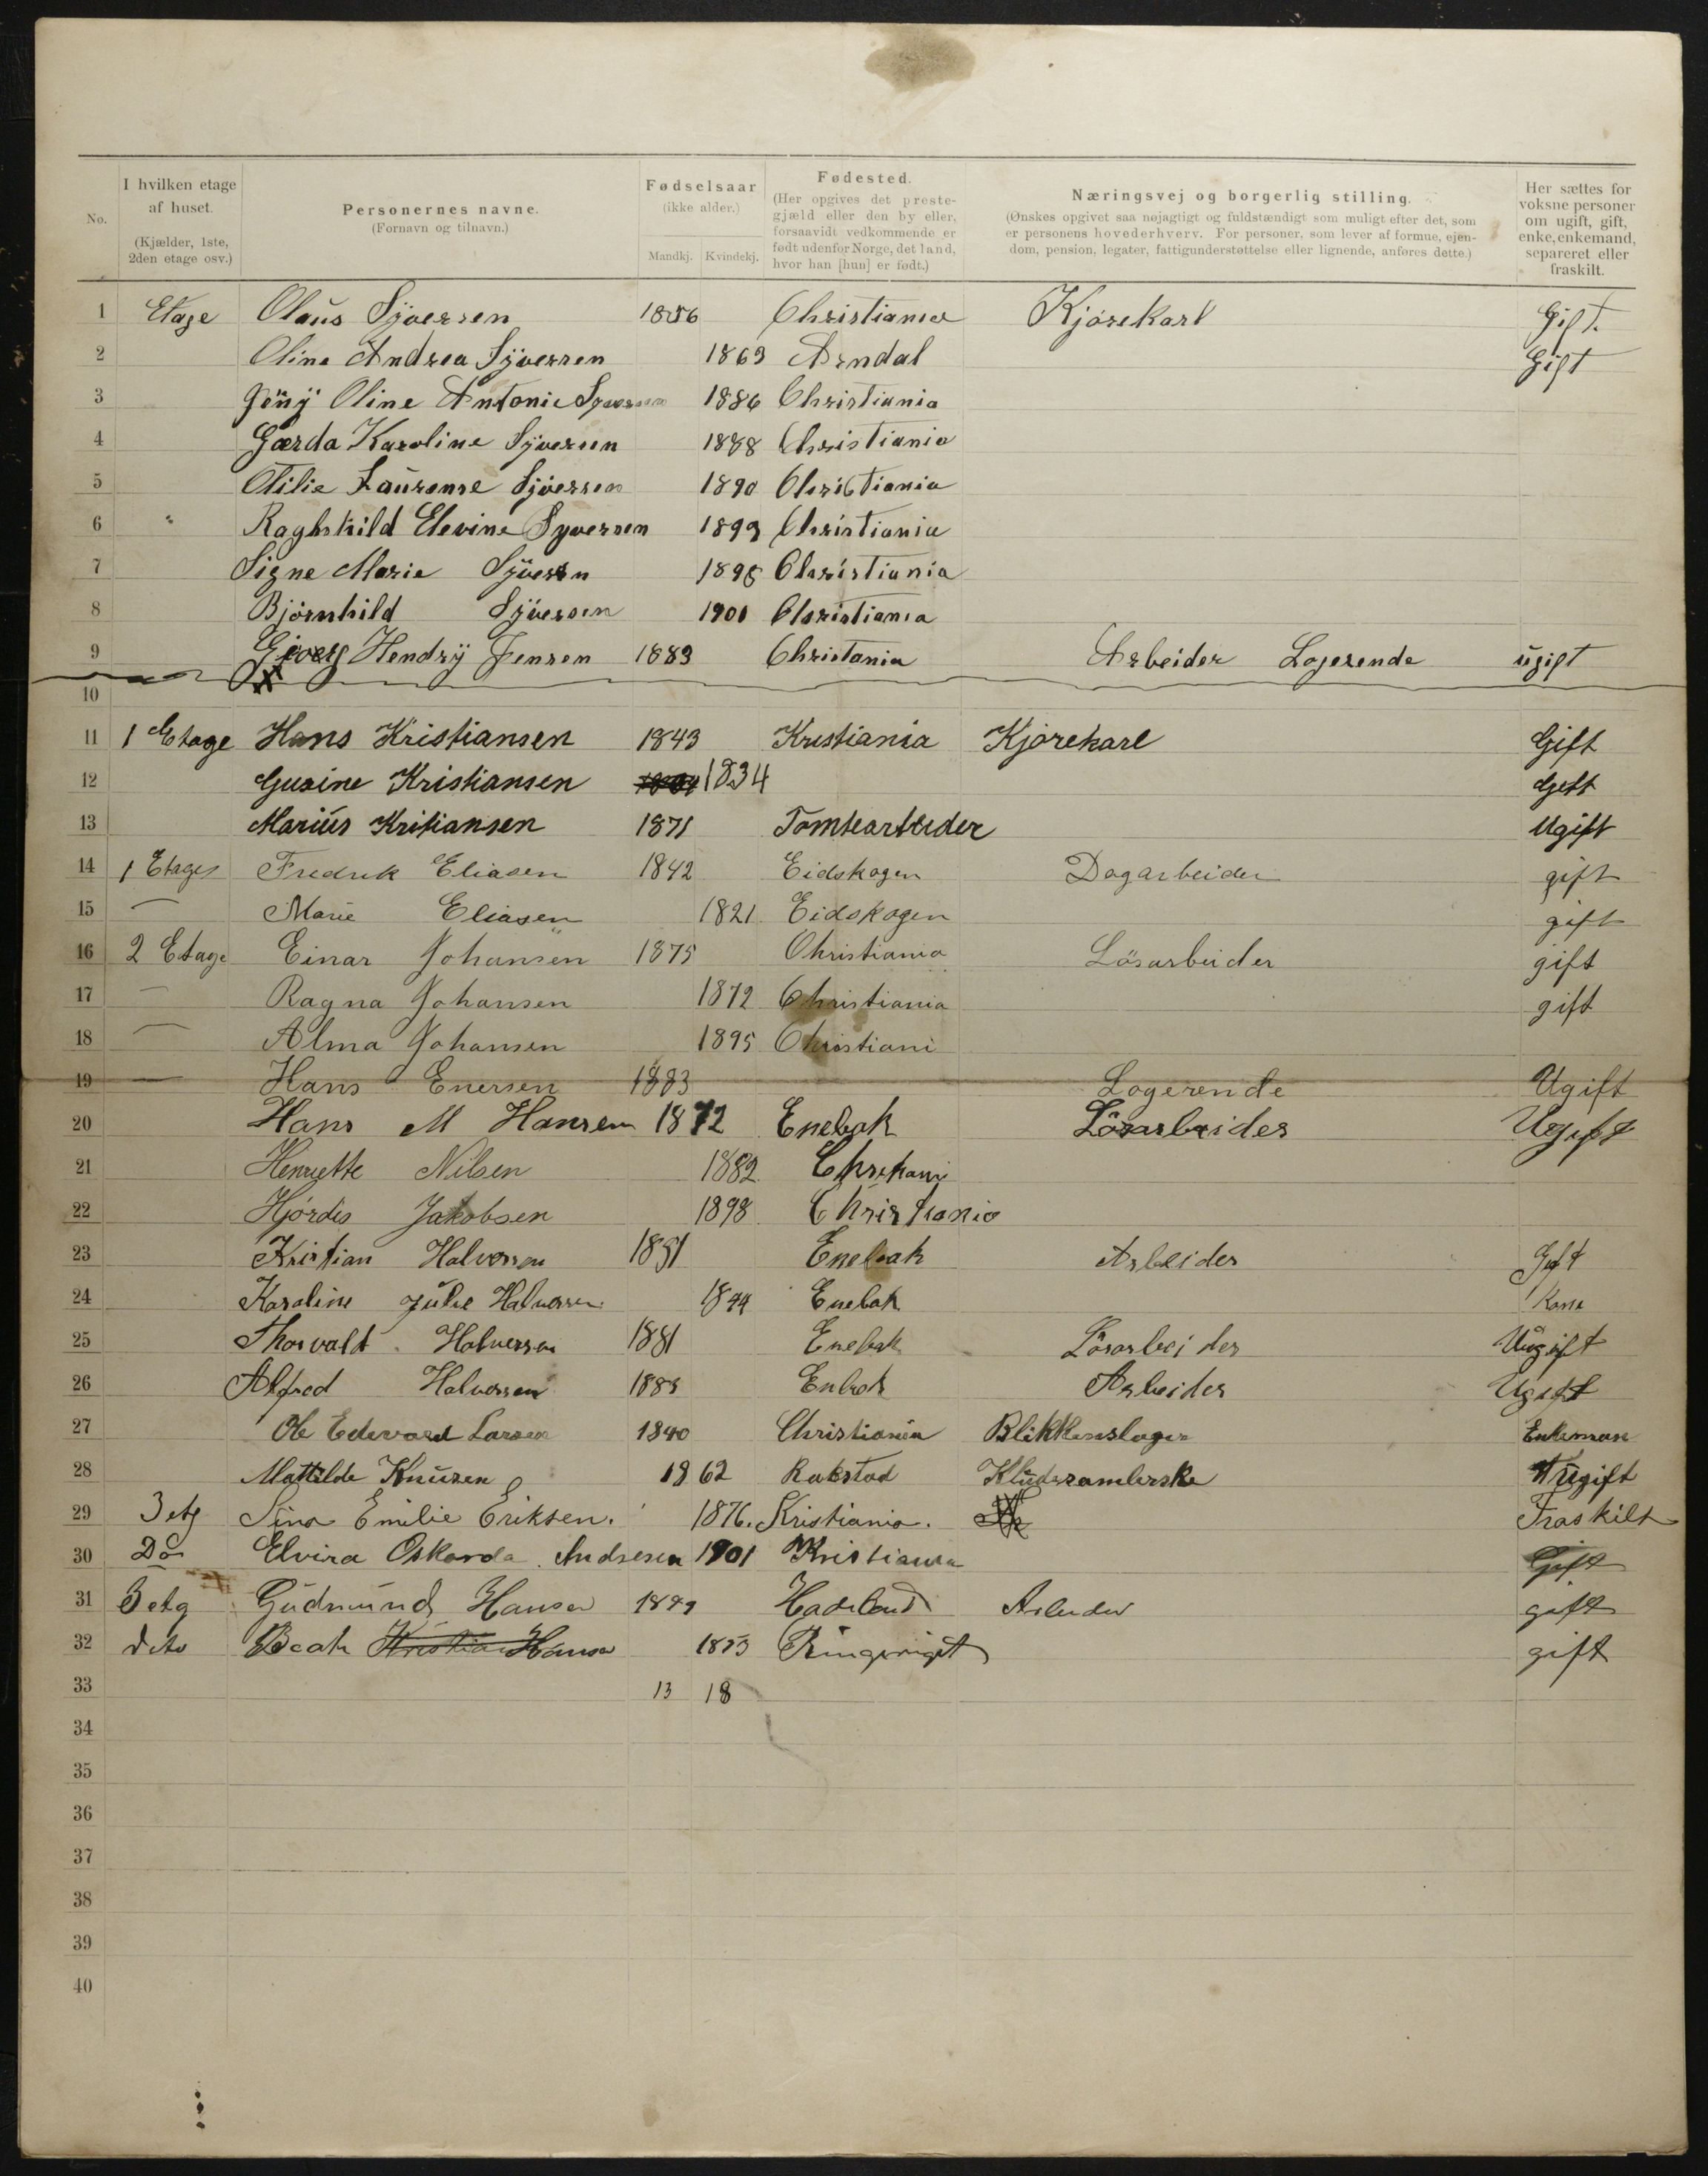 No.
I hvilken etage af huset. (Kjælder, 1ste, 2den etage osv.)
Personernes navne. (Fornavn og tilnavn.)
Fødselsaar (ikke alder.) Mandkj. Kvindekj.
Fødested. (Her opgives det prestegjæld eller den by eller, forsaavidt vedkommende er født udenfor Norge, det land, hvor han [hun] er født.)
Næringsvej og borgerlig stilling. (Ønskes opgivet saa nøjagtigt og fuldstændigt som muligt efter det, som er personens hovederhverv. For personer, som lever af formue, ejendom, pension, legater, fattigunderstøttelse eller lignende, anføres dette.)
Her sættes for voksne personer om ugift, gift, enke, enkemand, separeret eller fraskilt.
1 Etage Olaus Syversen 1856 Christiania Kjørekarl Gift.
2 Oline Andrea Syversen 1863 Arndal Gift
3 Jenny Oline Antonie Syversen 1886 Christiania
4 Gærda Karoline Syversen 1888 Christiania
5 Otilie Laurense Syversen 1890 Christiania
6 " Raghhild Elevine Syversen 1893 Christiania
7 Signe Marie Syversen 1898 Christiania
8 Bjørnhild Syversen 1901 Christiania
9 Hendry Jensen 1883 Christania Arbeider Logerende ugift
10
11 1 Etage Hans Kristiansen 1843 Kristiania Kjørekarl Gift
12 Gusine Kristiansen 1834 Gift
13 Marius Kritiansen 1871 Tomtearbeider Ugift
14 1 Etages Fredrik Eliasen 1842 Eidskogen Dagarbeider gift
15 — Marie Eliasen 1821 Eidskogen gift
16 2 Etage Einar Johansen 1875 Christiania Løsarbeider gift
17 — Ragna Johansen 1872 Christiania gift
18 — Alma Johansen 1895 Christiani
19 — Hans Enersen 1883 Logerende Ugift
20 Hans M Hansen 1872 Enebak Lösarbeider Ugift
21 Henriette Nilsen 1882
22 Hjørdis Jakobsen 1898 Christiania
23 Kristian Halvorsen 1851 Enebak Arbeider Gift
24 Karoline Julie Halvorsen 1844 Enebak Kone
25 Thorvald Halversen 1881 Enebak Lösarbeider Uugift
26 Alfred Halvorsen 1883 Enbak Arbeider Ugift
27 Ole Edevard Larsen 1840 Christiania Blikkenslager Enkeman
28 Matilde Knusen 1862 Rakstad Kludesamlerske Ugift
29 3 etg Sina Emilie Eriksen. 1876. Kristiania. Fraskilt
30 Do Elvira Oskarda Andresen 1901 Kristiania Gift
31 3 etg Gudmund Hansen 1849 Hadeland Arbeider gift
32 dito Beate Kristian Hansen 1853 Ringeriget gift
33 13 18
34
35
36
37
38
39
40